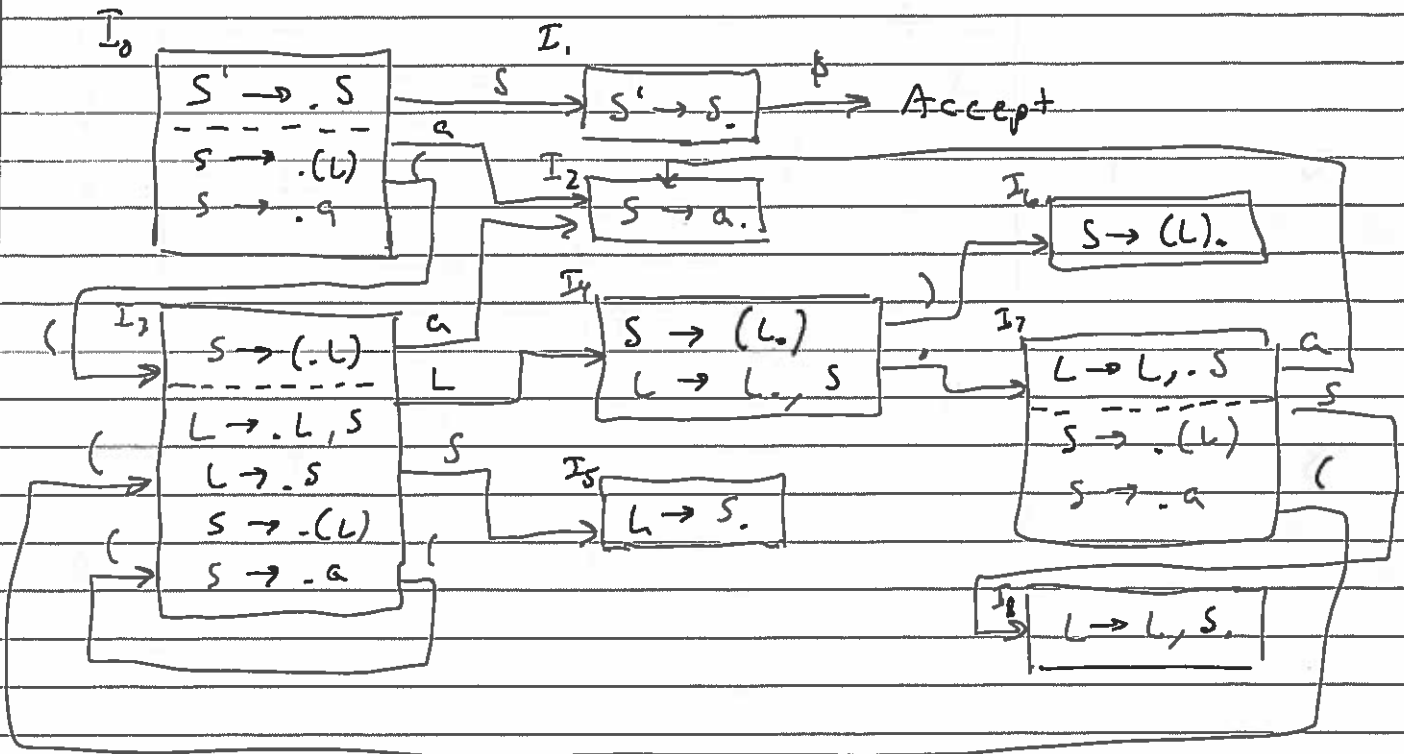 I0
S' → . S
S → .(L)
S → .a
S
a
(
I1
S' → S.
$
Accept
I2
S → a.
I3
(
S → (. L)
L → . L , S
L → . S
S → .(L)
S → .a
(
(
(
a
L
S
I4
S → (L.)
L → L. , S
)
,
I5
L → S.
I6
S → (L).
I7
L → L, . S
S → .(L)
S → .a
a
S
(
I8
L → L , S.